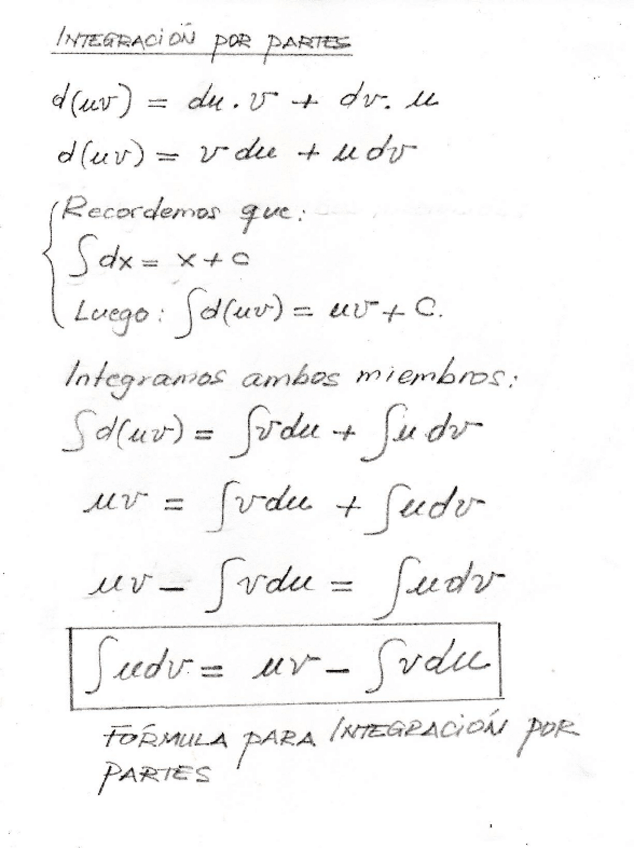 INTEGRACIÓN POR PARTES
d(uv) = du . v + dv. u
d(uv) = v du + u dv
Recordemos que:
∫dx = x + c
Luego: ∫d(uv) = uv + C.
Integramos ambos miembros:
∫d(uv) = ∫vdu + ∫u dv
uv = ∫vdu + ∫udv
uv - ∫vdu = ∫udv
∫udv = uv - ∫vdu
FÓRMULA PARA INTEGRACIÓN POR
PARTES